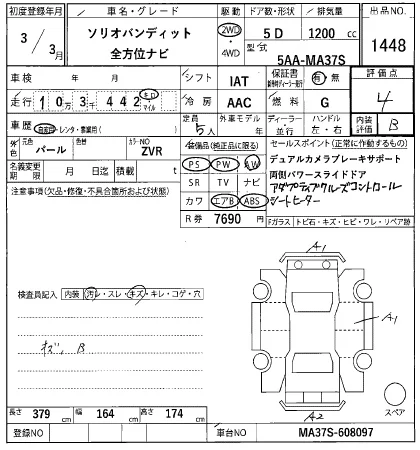 初度登録年月 車名・グレード 駆動 ドア数・形状 排気量 出品No.
3/3月 ソリオバンディット 全方位ナビ 2WD・4WD 5D 1200cc 1448
型式 5AA-MA37S
車検 年 月 シフト IAT 保証書 有 無 評価点
走行 10万3千442 キロ マイル 冷房 AAC 燃料 G 4
車歴 自家用・レンタ・事業用( ) 定員 5人 外車モデル 年 ディーラー・並行 ハンドル 左・右 内装評価 B
外色 元色 パール 色替 カラーNO ZVR 装備品(純正品に限る) セールスポイント(正常に作動するもの)
名義変更期限 月 日 積載 t PS PW AW デュアルカメラブレーキサポート
注意事項(欠品・修復・不具合箇所および状態) SR TV ナビ 両側パワースライドドア
カワ エアB ABS アダプティブクルーズコントロール
シートヒーター
R券 7690円 Fガラス トビ石・キズ・ヒビ・ワレ・リペア跡
A1
検査員記入 内装 汚レ・スレ・キズ・キレ・コゲ・穴
A1
キズ、B
スペア
長さ 379cm 幅 164cm 高さ 174cm A2
登録NO 車台NO MA37S-608097